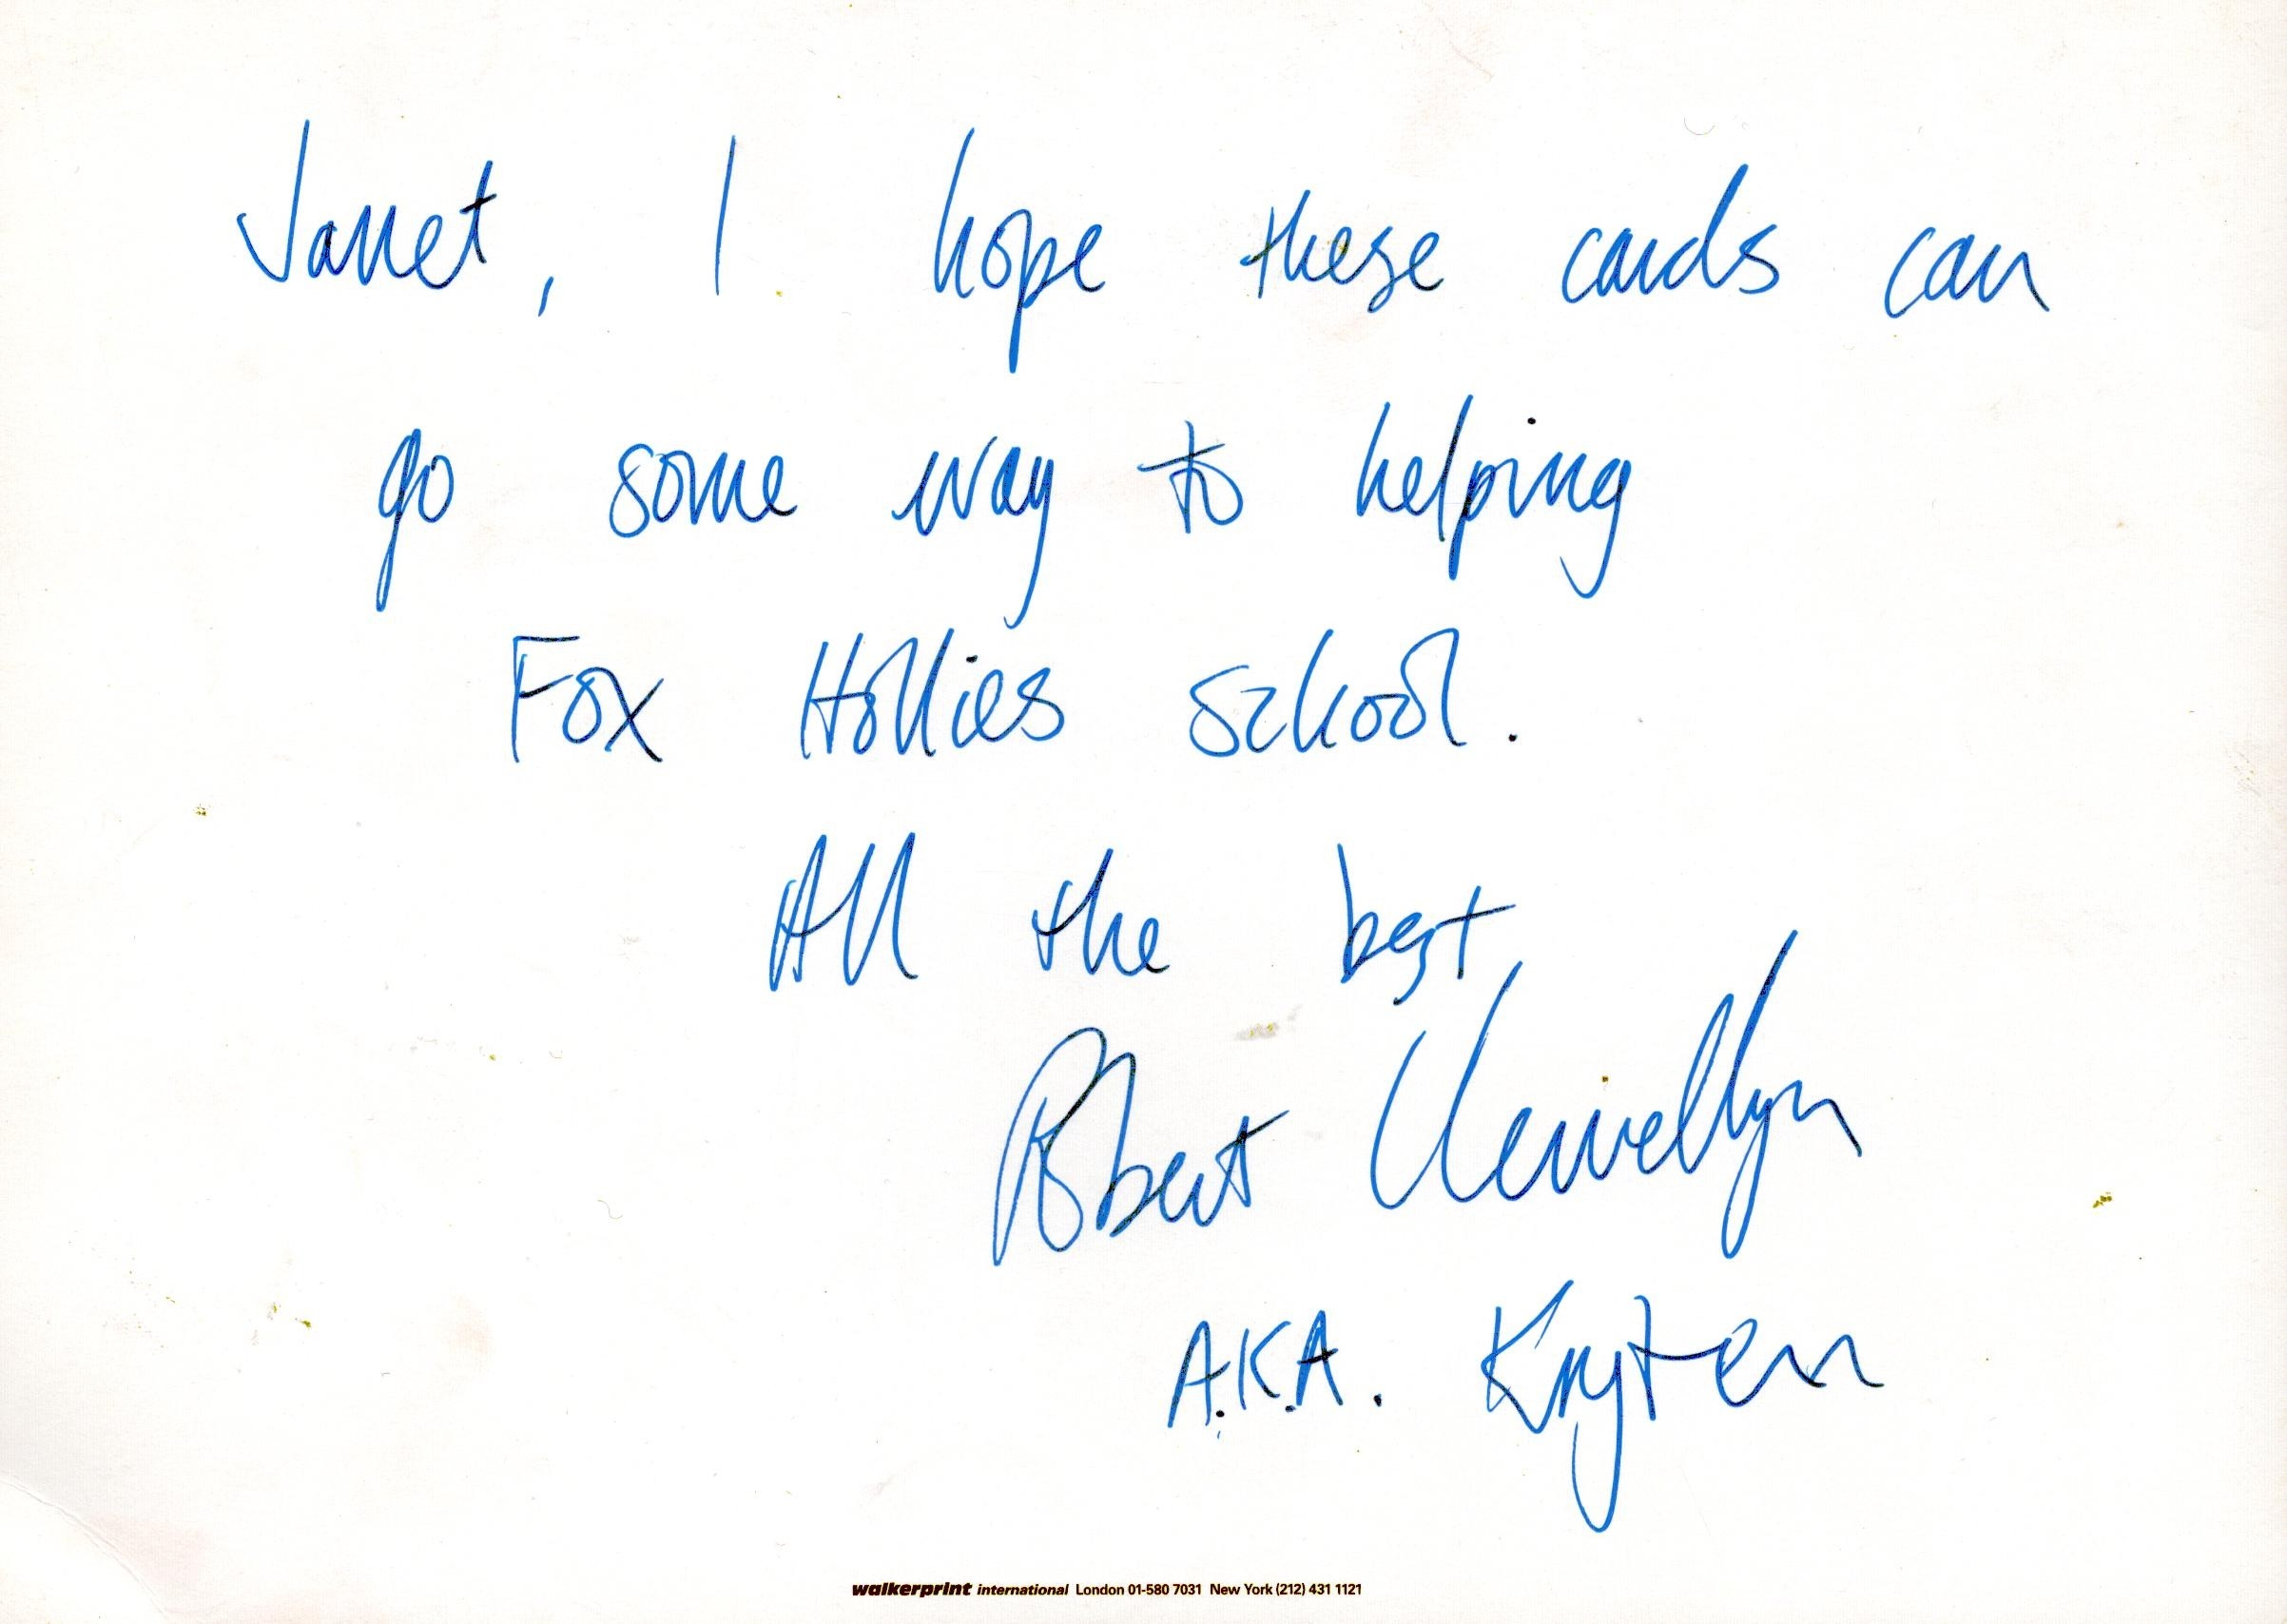 Janet, I hope these cards can
go some way to helping
Fox Hollies school.
All the best
Robert Llewellyn
A.K.A. Kryten
walkerprint international London 01-580 7031 New York (212) 431 1121